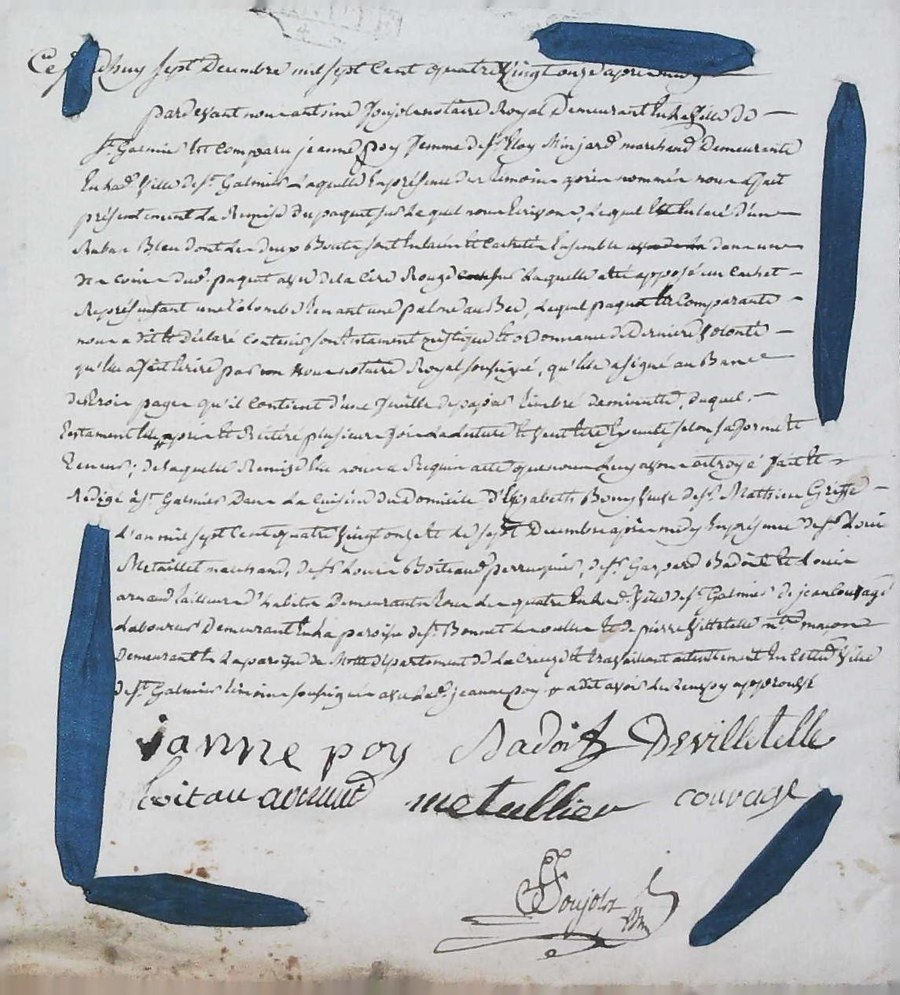 Ce jourdhuy sept Decembre mil sept Cent quatre Vingt onze apres midy
pardevant nous antoine Joujol notaire Royal Demeurant En la Ville de
St. Galmier Est Comparu jeanne poy femme de Sr. Eloy Minjard marchand Demeurante
En lad. Ville de St. Galmier Laquelle En présence des temoins apres nommés nous a fait
présentement La Remise du paquet sur Lequel nous Ecrivons, Lequel Est Enlacé d'un
Ruban Bleu dont Les deux Bouts sont Enlacés Et Cachetés Ensemble dans une
des coins dud. paquet avec de la Cire Rouge sur Laquelle a été apposé un Cachet
Représentant une Colombe tenant une palme au Bec, Lequel paquet la Comparante
nous a dit Et déclaré Contenir son testament mistique Et ordonnance de Derniere Volonté
qu'elle a fait Ecrire par nous notaire Royal soussigné, qu'elle a signé au Bas
des trois pages qu'il Contient d'une feuille de papier timbré de minutte, duquel
testament Elle apris Et Réitéré plusieurs fois La Lecture Et veut Etre Executé selon sa forme Et
teneur; de laquelle Remise Elle nous a Requis acte que nous Luy avons octroyé fait Et
Redigé à St. Galmier Dans La Cuisine du Domicile D'Elizabeth Bouy Veuve de Sr. Mathieu Griffe
L'an mil sept Cent quatre Vingt onze Et Le sept Decembre après midy En présence de Sr. Louis
Metaillet marchand, de Sr. Louis Boiteaud perruquier, de Sr. Gaspard Badoit Et Louis
arnaud tailleur D'habits Demeurants tous Les quatre En lad. Ville de St. Galmier de jean Couvage
Laboureur Demeurant En La paroisse de St. Bonnet Les oulles Et de pierre Villetelle mtre. maçon
Demeurant En La paroisse de département de La Creuze Et travaillant actuellement En Cette d. Ville
de St. Galmier temoins soussignés avec lad. jeanne poy
janne poy Badoit Devilletelle
boitau arnaud metallier couvage
Joujol